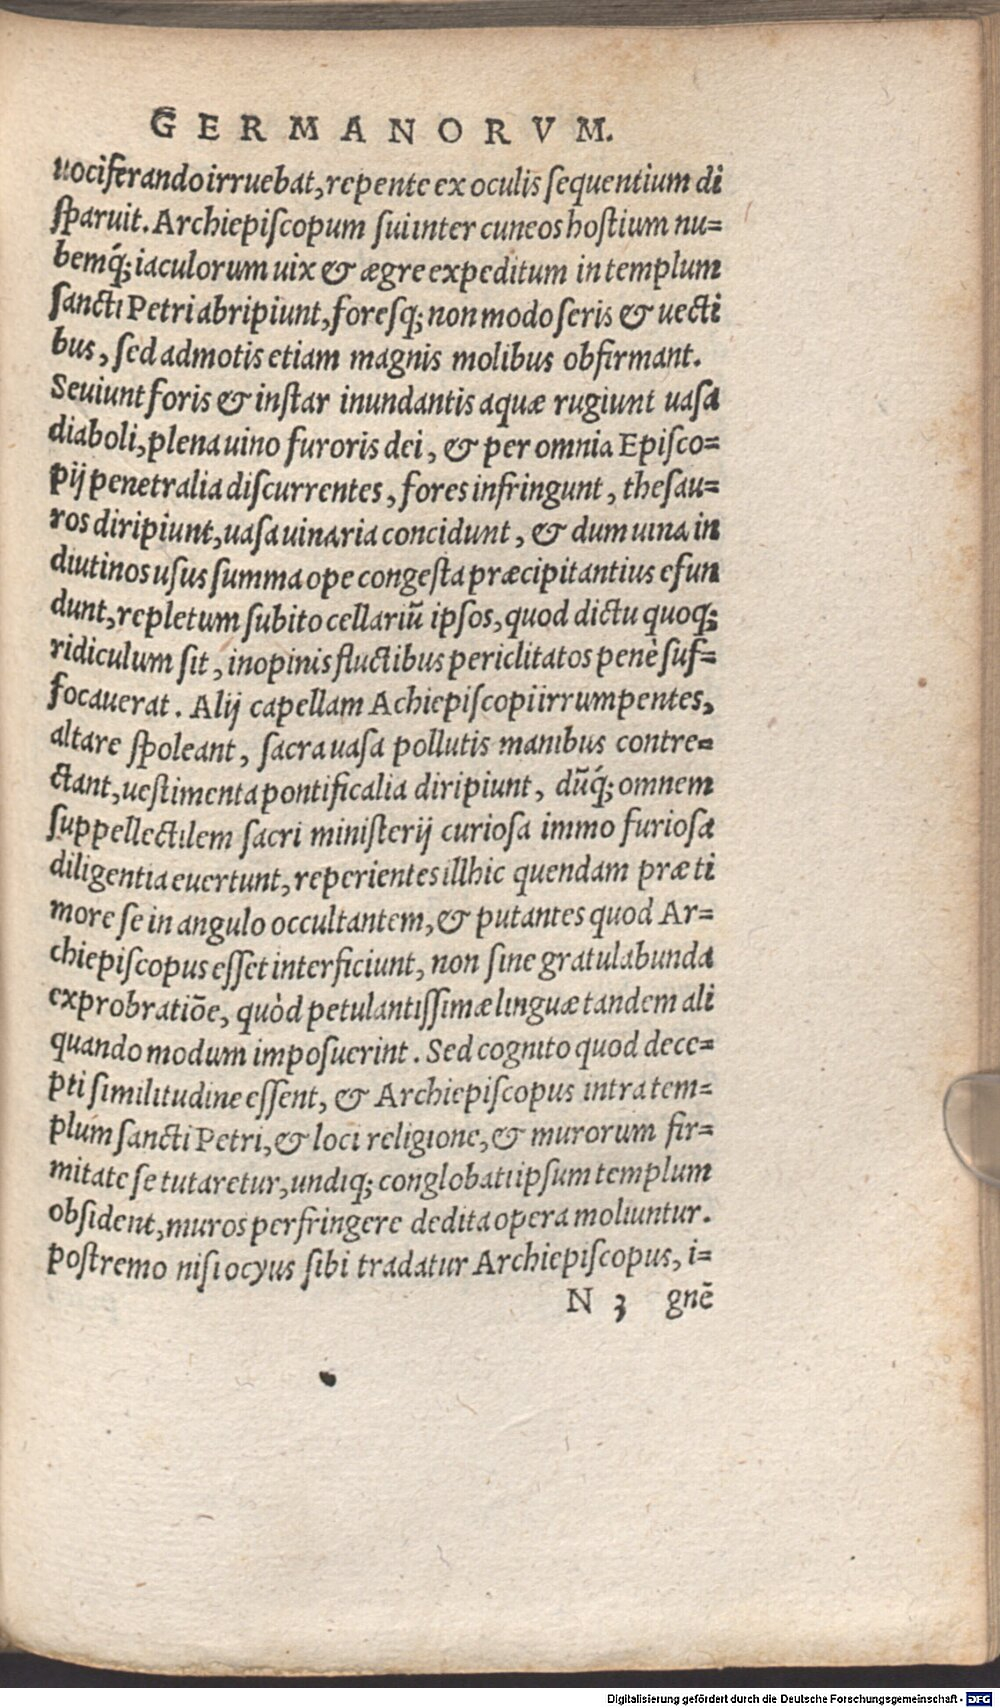 GERMANORVM.
uociferando irruebat, repente ex oculis sequentium di
sparuit. Archiepiscopum sui inter cuneos hostium nu=
bemq́; iaculorum uix & ægre expeditum in templum
sancti Petri abripiunt, foresq; non modo seris & uecti
bus, sed admotis etiam magnis molibus obfirmant.
Seuiunt foris & instar inundantis aquæ rugiunt uasa
diaboli, plena uino furoris dei, & per omnia Episco=
pij penetralia discurrentes, fores infringunt, thesau=
ros diripiunt, uasa uinaria concidunt, & dum uina in
diutinos usus summa ope congesta præcipitantius efun
dunt, repletum subito cellariũ ipsos, quod dictu quoq;
ridiculum sit, inopinis fluctibus periclitatos penè suf=
focauerat. Alij capellam Achiepiscopi irrumpentes,
altare spoleant, sacra uasa pollutis manibus contre=
ctant, uestimenta pontificalia diripiunt, dũq́; omnem
suppellectilem sacri ministerij curiosa immo furiosa
diligentia euertunt, reperientes illhic quendam præ ti
more se in angulo occultantem, & putantes quod Ar=
chiepiscopus esset interficiunt, non sine gratulabunda
exprobratiõe, quòd petulantissimæ linguæ tandem ali
quando modum imposuerint. Sed cognito quod dece=
pti similitudine essent, & Archiepiscopus intra tem=
plum sancti Petri, & loci religione, & murorum fir=
mitate se tutaretur, undiq; conglobati ipsum templum
obsident, muros perfringere dedita opera moliuntur.
postremo nisi ocyus sibi tradatur Archiepiscopus, i=
N 3 gnẽ
Digitalisierung gefördert durch die Deutsche Forschungsgemeinschaft - DFG